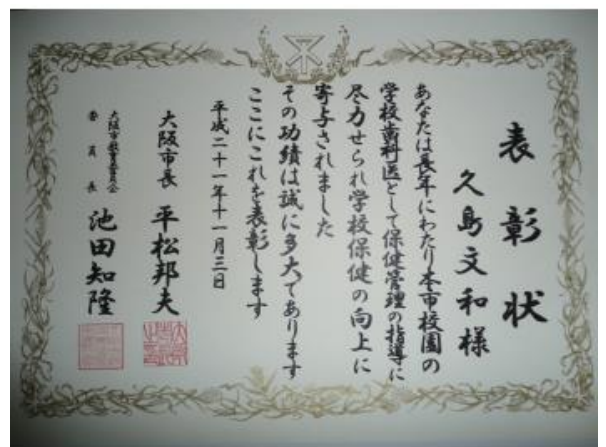 表彰状
久島文和様
あなたは長年にわたり本市校園の
学校歯科医として保健管理の指導に
尽力せられ学校保健の向上に
寄与されました
その功績は誠に多大であります
ここにこれを表彰します
平成二十一年十一月三日
大阪市長 平松邦夫
大阪市教育委員会
委員長 池田知隆